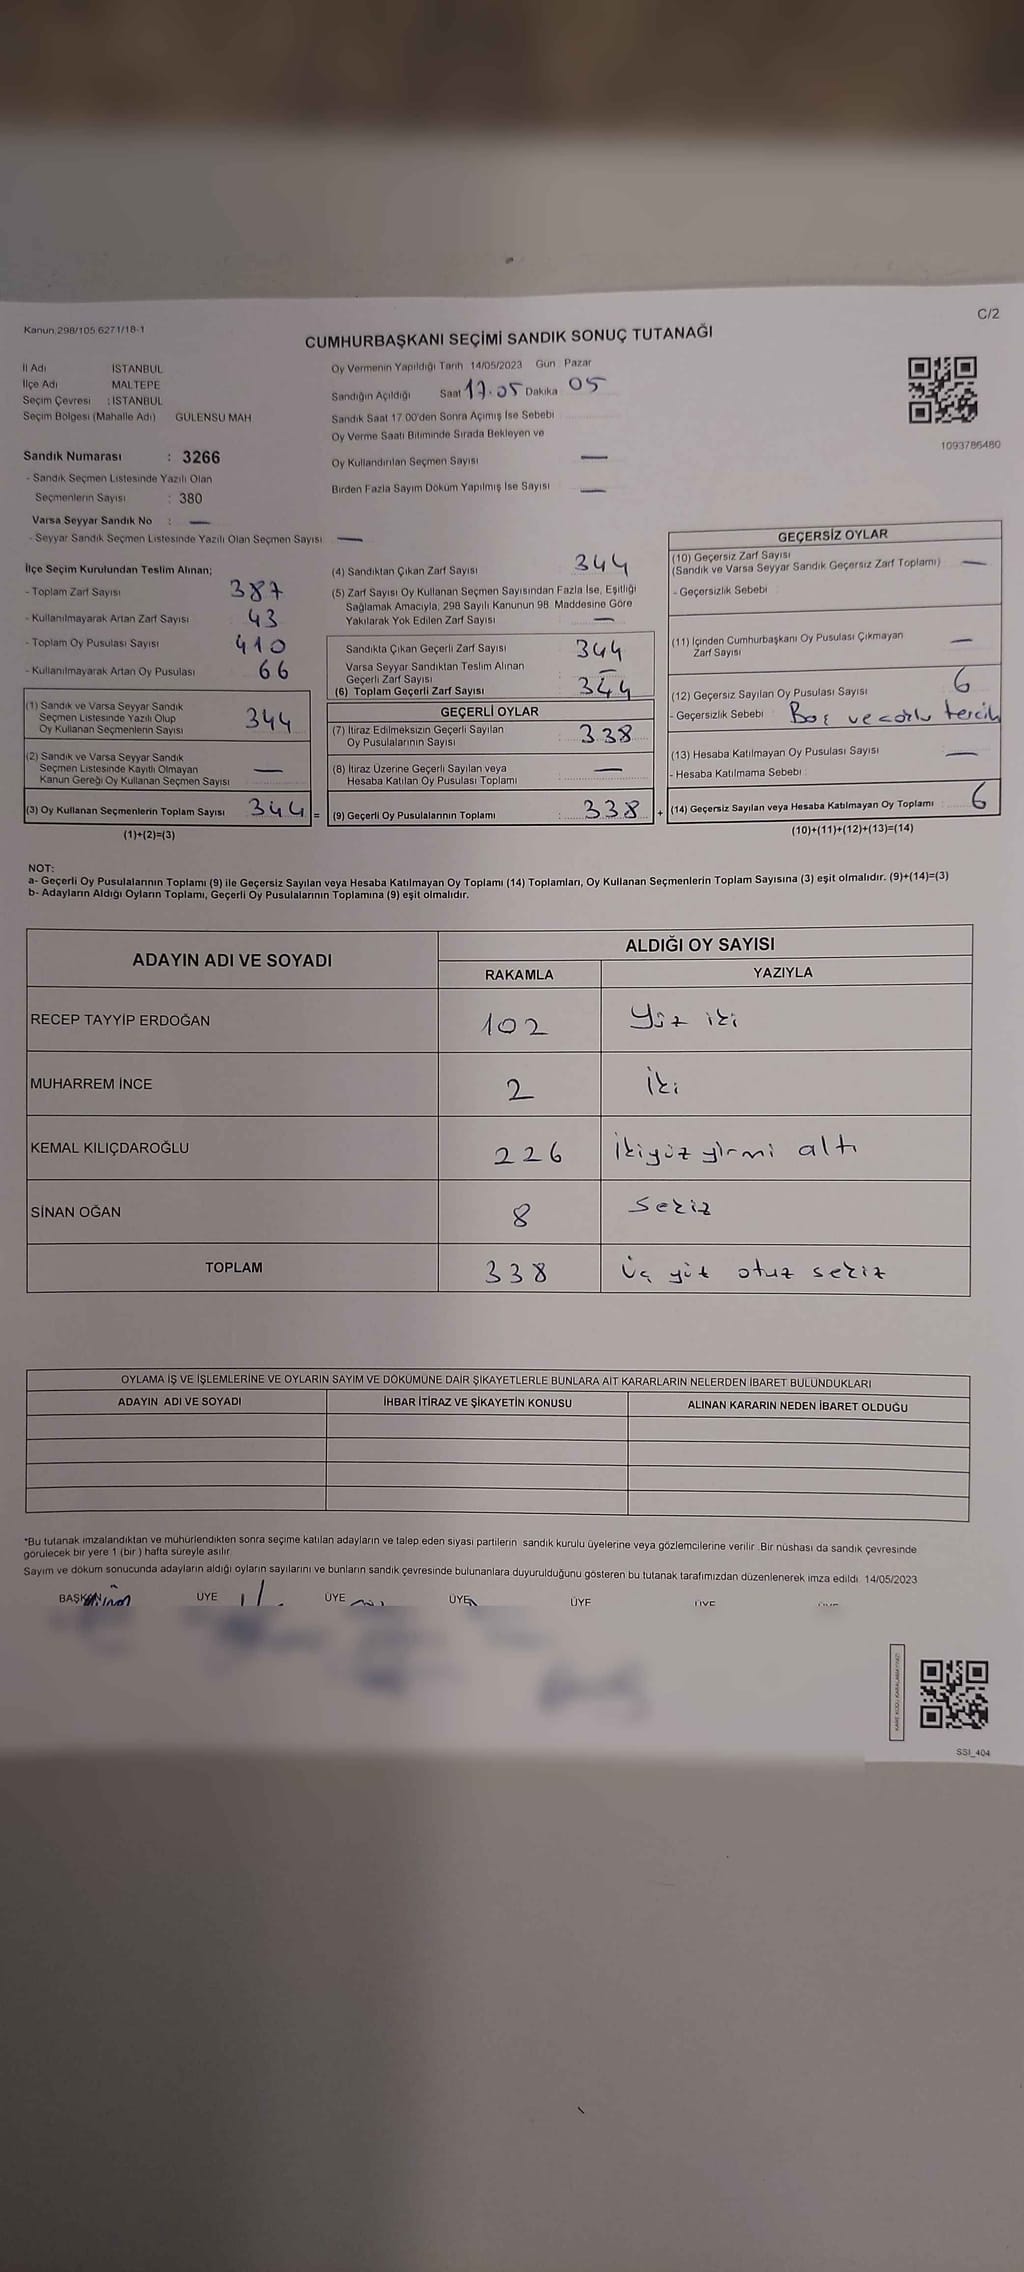 Kanun.298/105.6271/18-1
C/2
CUMHURBAŞKANI SEÇİMİ SANDIK SONUÇ TUTANAĞI
1093786480
İl Adı İSTANBUL
İlçe Adı MALTEPE
Seçim Çevresi : İSTANBUL
Seçim Bölgesi (Mahalle Adı) GÜLENSU MAH
Sandık Numarası : 3266
- Sandık Seçmen Listesinde Yazılı Olan
Seçmenlerin Sayısı : 380
Varsa Seyyar Sandık No : —
- Seyyar Sandık Seçmen Listesinde Yazılı Olan Seçmen Sayısı —
Oy Vermenin Yapıldığı Tarih 14/05/2023 Gün Pazar
Sandığın Açıldığı Saat 17.05 Dakika 05
Sandık Saat 17.00'den Sonra Açımış İse Sebebi
Oy Verme Saati Bitiminde Sırada Bekleyen ve
Oy Kullandırılan Seçmen Sayısı —
Birden Fazla Sayım Döküm Yapılmış İse Sayısı —
İlçe Seçim Kurulundan Teslim Alınan;
- Toplam Zarf Sayısı 387
- Kullanılmayarak Artan Zarf Sayısı 43
- Toplam Oy Pusulası Sayısı 410
- Kullanılmayarak Artan Oy Pusulası 66
(1) Sandık ve Varsa Seyyar Sandık
Seçmen Listesinde Yazılı Olup
Oy Kullanan Seçmenlerin Sayısı 344
(2) Sandık ve Varsa Seyyar Sandık
Seçmen Listesinde Kayıtlı Olmayan
Kanun Gereği Oy Kullanan Seçmen Sayısı —
(3) Oy Kullanan Seçmenlerin Toplam Sayısı 344 =
(1)+(2)=(3)
(4) Sandıktan Çıkan Zarf Sayısı 344
(5) Zarf Sayısı Oy Kullanan Seçmen Sayısından Fazla İse, Eşitliği
Sağlamak Amacıyla, 298 Sayılı Kanunun 98. Maddesine Göre
Yakılarak Yok Edilen Zarf Sayısı —
Sandıkta Çıkan Geçerli Zarf Sayısı 344
Varsa Seyyar Sandıktan Teslim Alınan
Geçerli Zarf Sayısı —
(6) Toplam Geçerli Zarf Sayısı 344
GEÇERLİ OYLAR
(7) İtiraz Edilmeksizin Geçerli Sayılan
Oy Pusulalarının Sayısı 338
(8) İtiraz Üzerine Geçerli Sayılan veya
Hesaba Katılan Oy Pusulası Toplamı —
(9) Geçerli Oy Pusulalarının Toplamı : 338 +
GEÇERSİZ OYLAR
(10) Geçersiz Zarf Sayısı
(Sandık ve Varsa Seyyar Sandık Geçersiz Zarf Toplamı) —
- Geçersizlik Sebebi
(11) İçinden Cumhurbaşkanı Oy Pusulası Çıkmayan
Zarf Sayısı —
(12) Geçersiz Sayılan Oy Pusulası Sayısı 6
- Geçersizlik Sebebi Boş ve çoklu tercih
(13) Hesaba Katılmayan Oy Pusulası Sayısı —
- Hesaba Katılmama Sebebi :
(14) Geçersiz Sayılan veya Hesaba Katılmayan Oy Toplamı 6
(10)+(11)+(12)+(13)=(14)
NOT:
a- Geçerli Oy Pusulalarının Toplamı (9) ile Geçersiz Sayılan veya Hesaba Katılmayan Oy Toplamı (14) Toplamları, Oy Kullanan Seçmenlerin Toplam Sayısına (3) eşit olmalıdır. (9)+(14)=(3)
b- Adayların Aldığı Oyların Toplamı, Geçerli Oy Pusulalarının Toplamına (9) eşit olmalıdır.
ADAYIN ADI VE SOYADI ALDIĞI OY SAYISI
RAKAMLA YAZIYLA
RECEP TAYYİP ERDOĞAN 102 Yüz iki
MUHARREM İNCE 2 İki
KEMAL KILIÇDAROĞLU 226 İkiyüz yirmi altı
SİNAN OĞAN 8 Sekiz
TOPLAM 338 Üç yüz otuz sekiz
OYLAMA İŞ VE İŞLEMLERİNE VE OYLARIN SAYIM VE DÖKÜMÜNE DAİR ŞİKAYETLERLE BUNLARA AİT KARARLARIN NELERDEN İBARET BULUNDUKLARI
ADAYIN ADI VE SOYADI İHBAR İTİRAZ VE ŞİKAYETİN KONUSU ALINAN KARARIN NEDEN İBARET OLDUĞU
*Bu tutanak imzalandıktan ve mühürlendikten sonra seçime katılan adayların ve talep eden siyasi partilerin sandık kurulu üyelerine veya gözlemcilerine verilir. Bir nüshası da sandık çevresinde
görülecek bir yere 1 (bir ) hafta süreyle asılır.
Sayım ve döküm sonucunda adayların aldığı oyların sayılarını ve bunların sandık çevresinde bulunanlara duyurulduğunu gösteren bu tutanak tarafımızdan düzenlenerek imza edildi. 14/05/2023
BAŞKAN ÜYE ÜYE ÜYE ÜYE ÜYE
SSI_404